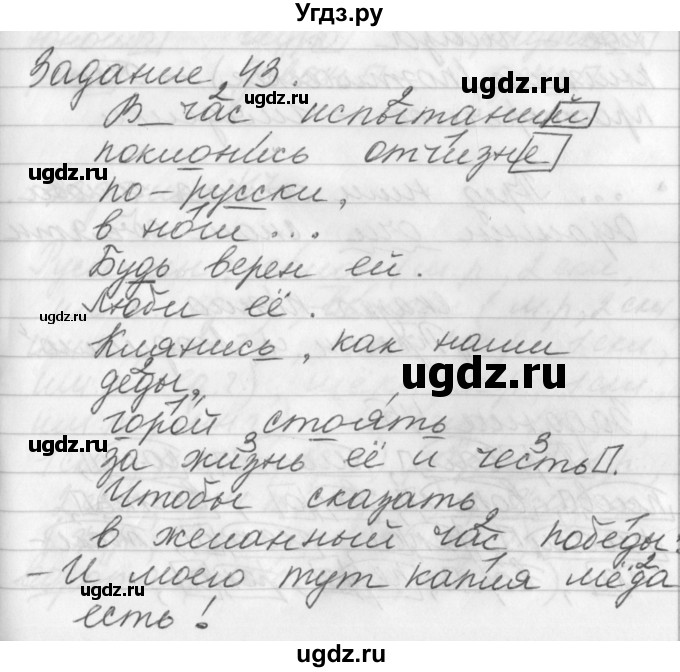 Угдз.ру
Задание 43.
В час испытаний
поклонись отчизне
по-русски,
в ноги...
Будь верен ей.
Люби её.
Клянись, как наши
деды,
горой стоять
за жизнь её и честь.
Чтобы сказать
в желанный час победы:
- И моего тут капля мёда
есть!
ugdz.ru
ugdz.ru
ugdz.ru
ugdz.ru
ugdz.ru
ugdz.ru
ugdz.ru
ugdz.ru
ugdz.ru
ugdz.ru